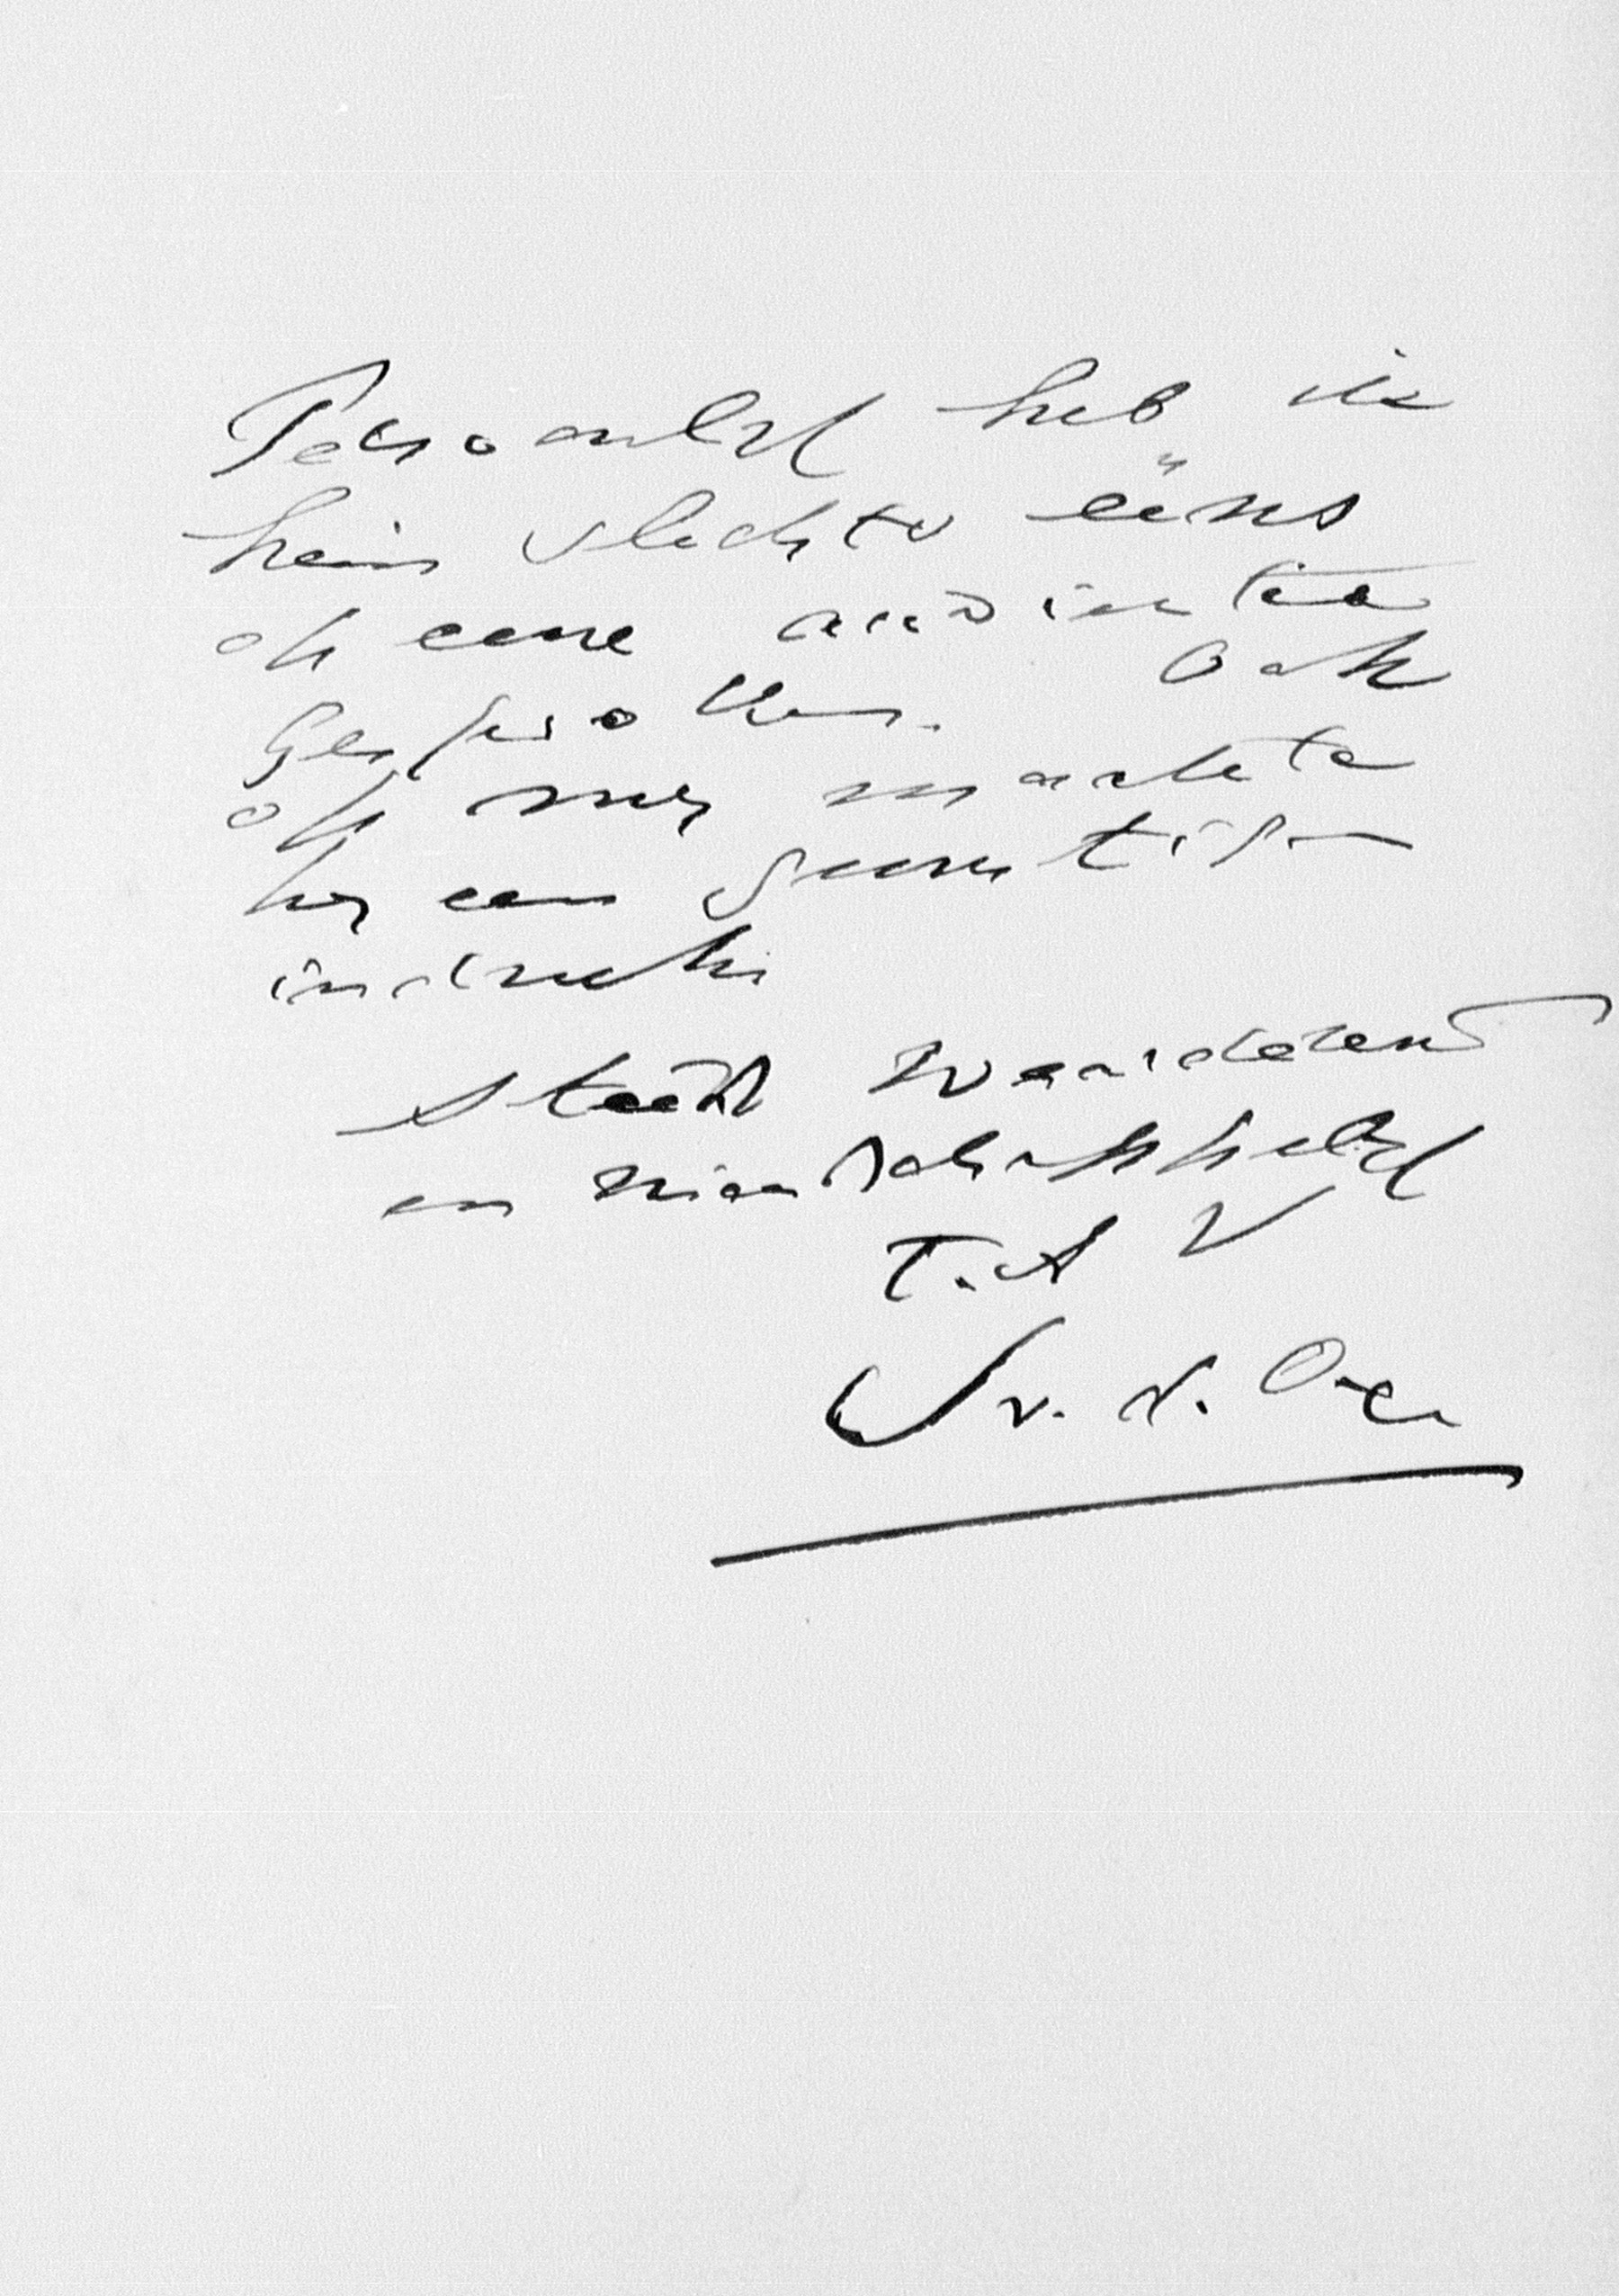 Persoonlijk heb ik
hem slechts ééns
op eene audientie
gesproken. Ook
op mij maakte
hij een gunstigen
indruk
Steeds waardeerend
en vriendschappelijk
T.A V
v. d. Oye